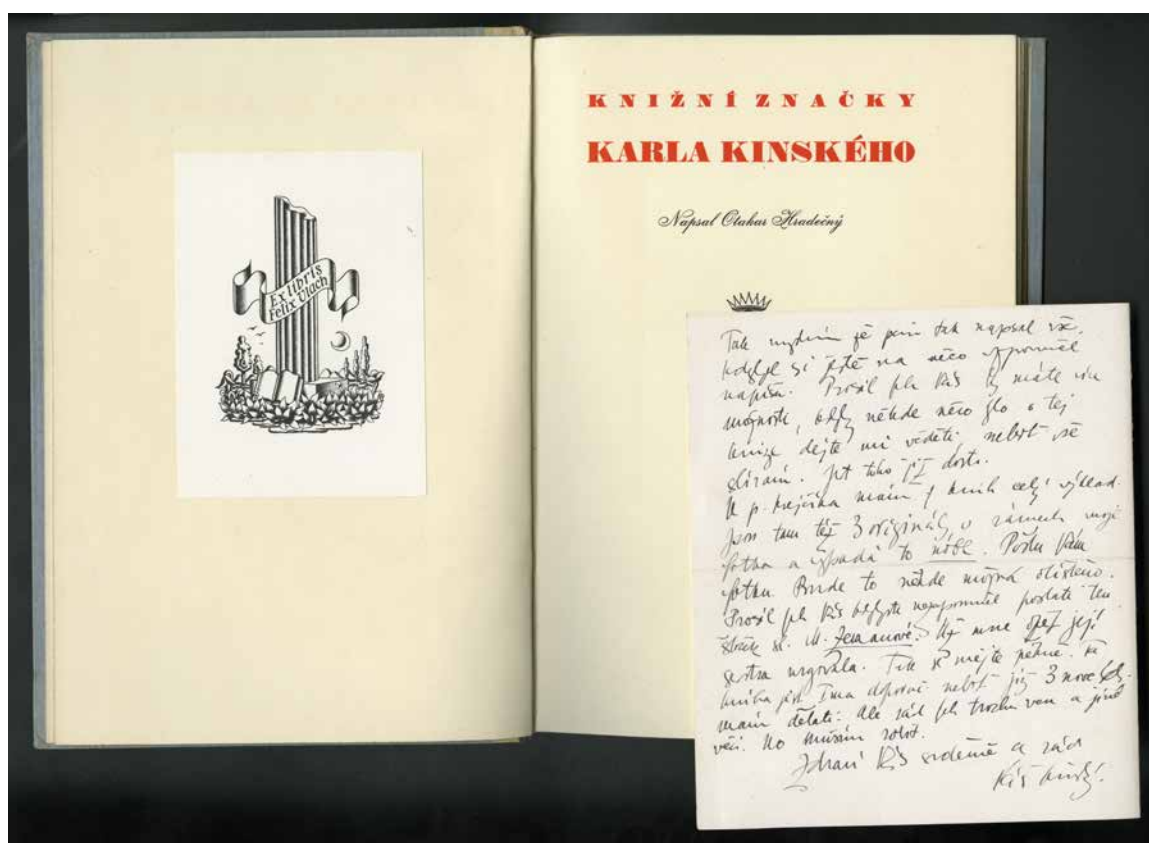 Ex libris
Felix Vlach
KNIŽNÍ ZNAČKY
KARLA KINSKÉHO
Napsal Otakar Hradečný
Tak myslím že jsem tak napsal vše.
kdyby si ještě na něco vzpomněl
napíšu. Prosil bych Vás by máte
možnost, kdyby někde něco šlo o tej
knize dejte mi věděti, neboť vše
sbírám. Jet toho již dosti.
U p. Krejčíka mám z knih celý výklad.
Jsou tam též 3 originály v rámech moji
fotka a vypadá to nóbl. Pošlu Vám
fotku. Bude to někde možná otištěno.
Prosil bych Vás abyste nezapomněl poslati ten
sl. M. Zemanové. Už mne opět její
sestra urgovala. Tak se mějte pěkně.
kniha neboť již 3 nové
mám dělati. Ale rád bych trochu ven a jiné
věci. No musím robot.
Zdraví Vás srdečně a rád
Váš Kinský.